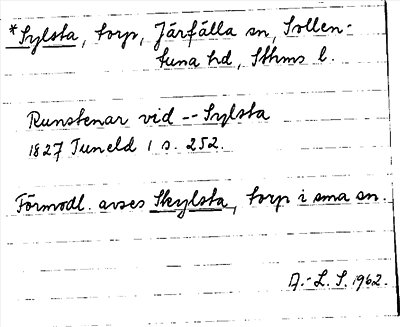 *Sylsta, torp, Järfälla sn, Sollen-
tuna hd, Sthms l.
Runstenar vid -- Sylsta
1827 Tuneld 1 s. 252.
Förmodl. avses Skylsta, torp i sma sn.
A.-L. S. 1962.